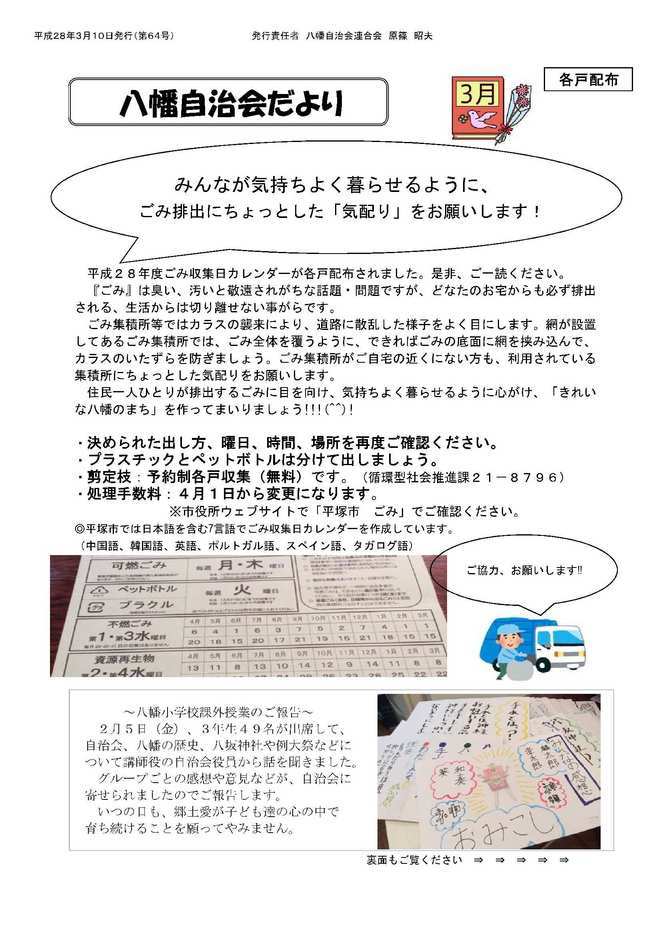 平成28年3月10日発行(第64号)　発行責任者　八幡自治会連合会　原篠　昭夫
各戸配布
八幡自治会だより
3月
みんなが気持ちよく暮らせるように、
ごみ排出にちょっとした「気配り」をお願いします！
平成２８年度ごみ収集日カレンダーが各戸配布されました。是非、ご一読ください。
『ごみ』は臭い、汚いと敬遠されがちな話題・問題ですが、どなたのお宅からも必ず排出
される、生活からは切り離せない事がらです。
ごみ集積所等ではカラスの襲来により、道路に散乱した様子をよく目にします。網が設置
してあるごみ集積所では、ごみ全体を覆うように、できればごみの底面に網を挟み込んで、
カラスのいたずらを防ぎましょう。ごみ集積所がご自宅の近くにない方も、利用されている
集積所にちょっとした気配りをお願いします。
住民一人ひとりが排出するごみに目を向け、気持ちよく暮らせるように心がけ、「きれい
な八幡のまち」を作ってまいりましょう!!!(^^)!
・決められた出し方、曜日、時間、場所を再度ご確認ください。
・プラスチックとペットボトルは分けて出しましょう。
・剪定枝：予約制各戸収集（無料）です。（循環型社会推進課２１－８７９６）
・処理手数料：４月１日から変更になります。
※市役所ウェブサイトで「平塚市　ごみ」でご確認ください。
◎平塚市では日本語を含む7言語でごみ収集日カレンダーを作成しています。
（中国語、韓国語、英語、ポルトガル語、スペイン語、タガログ語）
ご協力、お願いします!!
可燃ごみ 毎週 月・木 曜日
ペットボトル
プラクル 毎週 火 曜日
不燃ごみ 4月 5月 6月 7月 8月 9月 10月 11月 12月 1月 2月 3月
第1・第3水曜日
資源再生物 4月 5月 6月 7月 8月 9月 10月 11月 12月 1月 2月 3月
第2・第4水曜日
～八幡小学校課外授業のご報告～
２月５日（金）、３年生４９名が出席して、
自治会、八幡の歴史、八坂神社や例大祭などに
ついて講師役の自治会役員から話を聞きました。
グループごとの感想や意見などが、自治会に
寄せられましたのでご報告します。
いつの日も、郷土愛が子ども達の心の中で
育ち続けることを願ってやみません。
おみこし
裏面もご覧ください　⇒　⇒　⇒　⇒　⇒